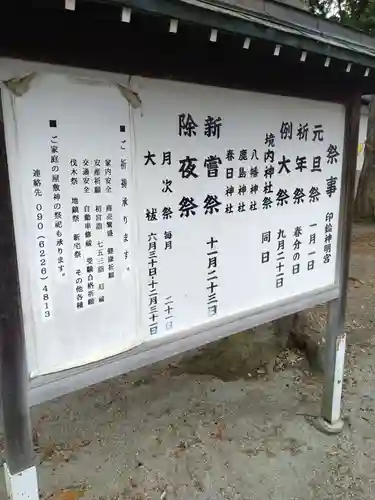 祭事 印松神明宮
元旦祭 一月一日
祈年祭 春分の日
例大祭 九月二十日
境内神社祭 同日
八幡神社
鹿島神社
春日神社
新嘗祭 十一月二十三日
除夜祭
月次祭 毎月 二十一日
大祓 六月三十日・十二月三十一日
■ご祈祷承ります。
家内安全 商売繁盛 健康祈願
安産祈願 初宮詣 七五三詣 厄祓
交通安全 自動車修祓 受験合格祈願
伐木祭 地鎮祭 新宅祭 その他各種
■ご家庭の屋敷神の祭祀も承ります。
連絡先 090(6226)4813